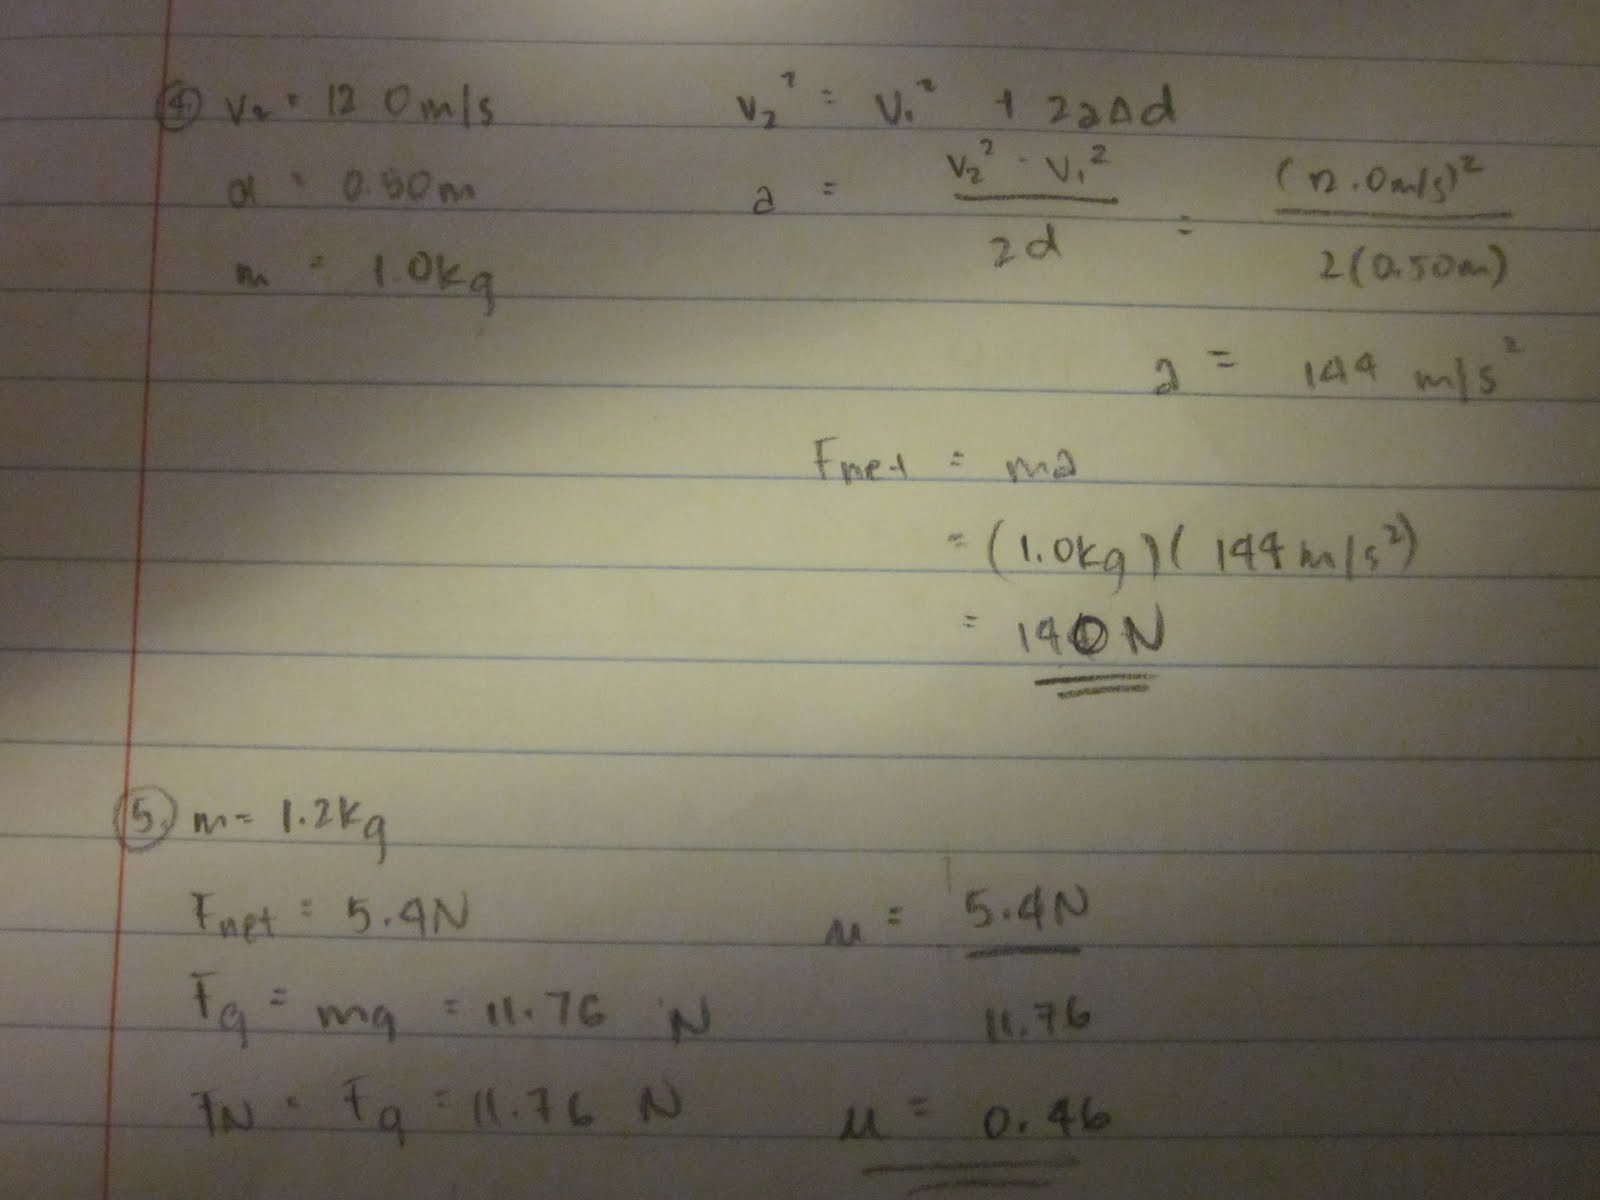 ④ v₂ = 12 0m/s
d = 0.50m
m = 1.0kg
v₂² = v₁² + 2aΔd
a = (v₂² - v₁²) / 2d = (12.0m/s)² / 2(0.50m)
a = 144 m/s²
Fnet = ma
= (1.0kg)(144m/s²)
= 140N
⑤. m= 1.2kg
Fnet = 5.4N
Fg = mg = 11.76 N
FN = Fg = 11.76 N
μ = 5.4N / 11.76
μ = 0.46